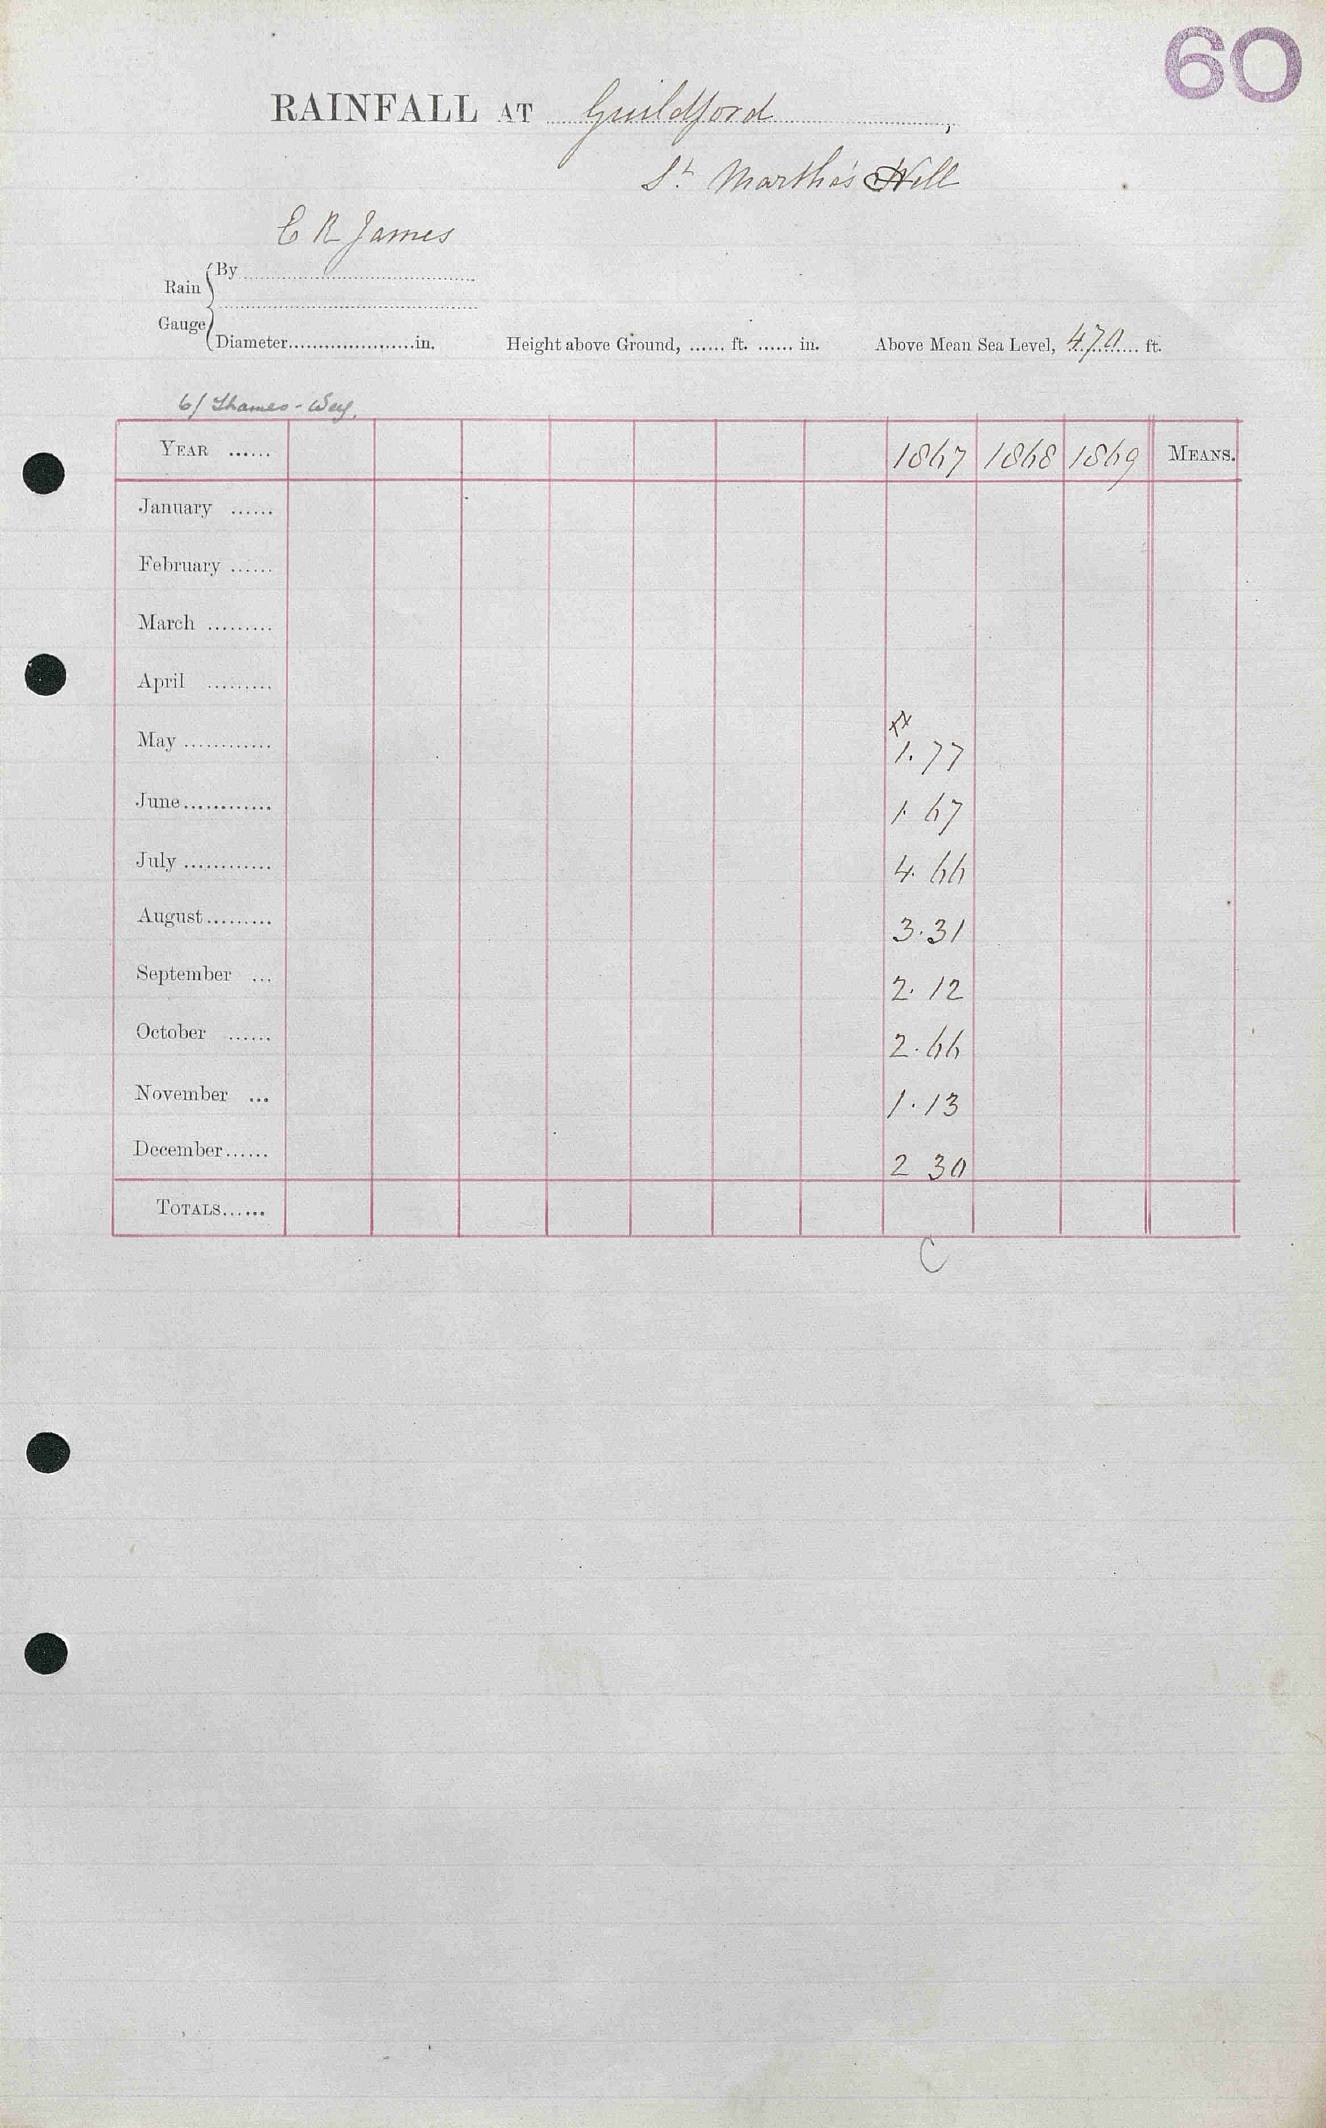 60
RAINFALL AT Guildford,
St. Martha's Hill
E R James
Rain Gauge { By
Diameter.....................in. Height above Ground, ...... ft. ...... in. Above Mean Sea Level, 470 ft.
6/ Thames - Wey.
YEAR ...... 1867 1868 1869 MEANS.
January ......
February ......
March .........
April .........
May ............ 1.77
June............ 1 67
July ............ 4.66
August......... 3.31
September ... 2.12
October ...... 2.66
November ... 1.13
December...... 2 30
TOTALS......
C